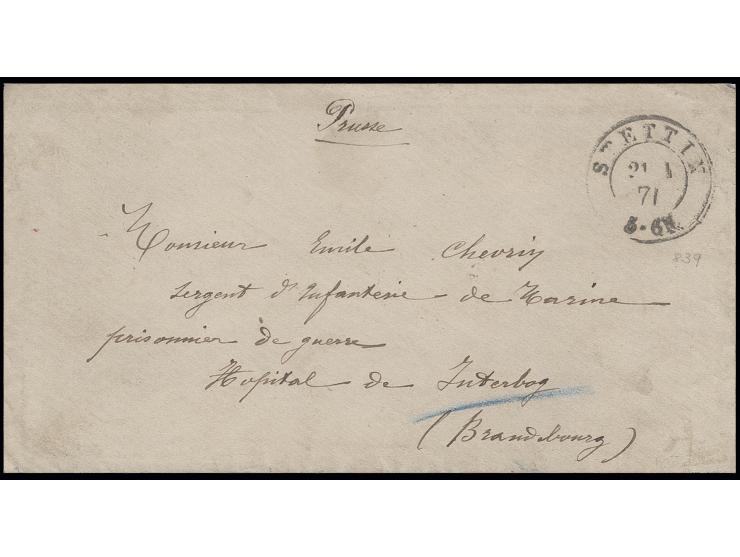 Prusse
STETTIN
21 1
71
5-6N
839
Monsieur Emile Chevrin
sergent d'Infanterie de Marine
prisonnier de guerre
Hopital de Juterbog
(Brandebourg)